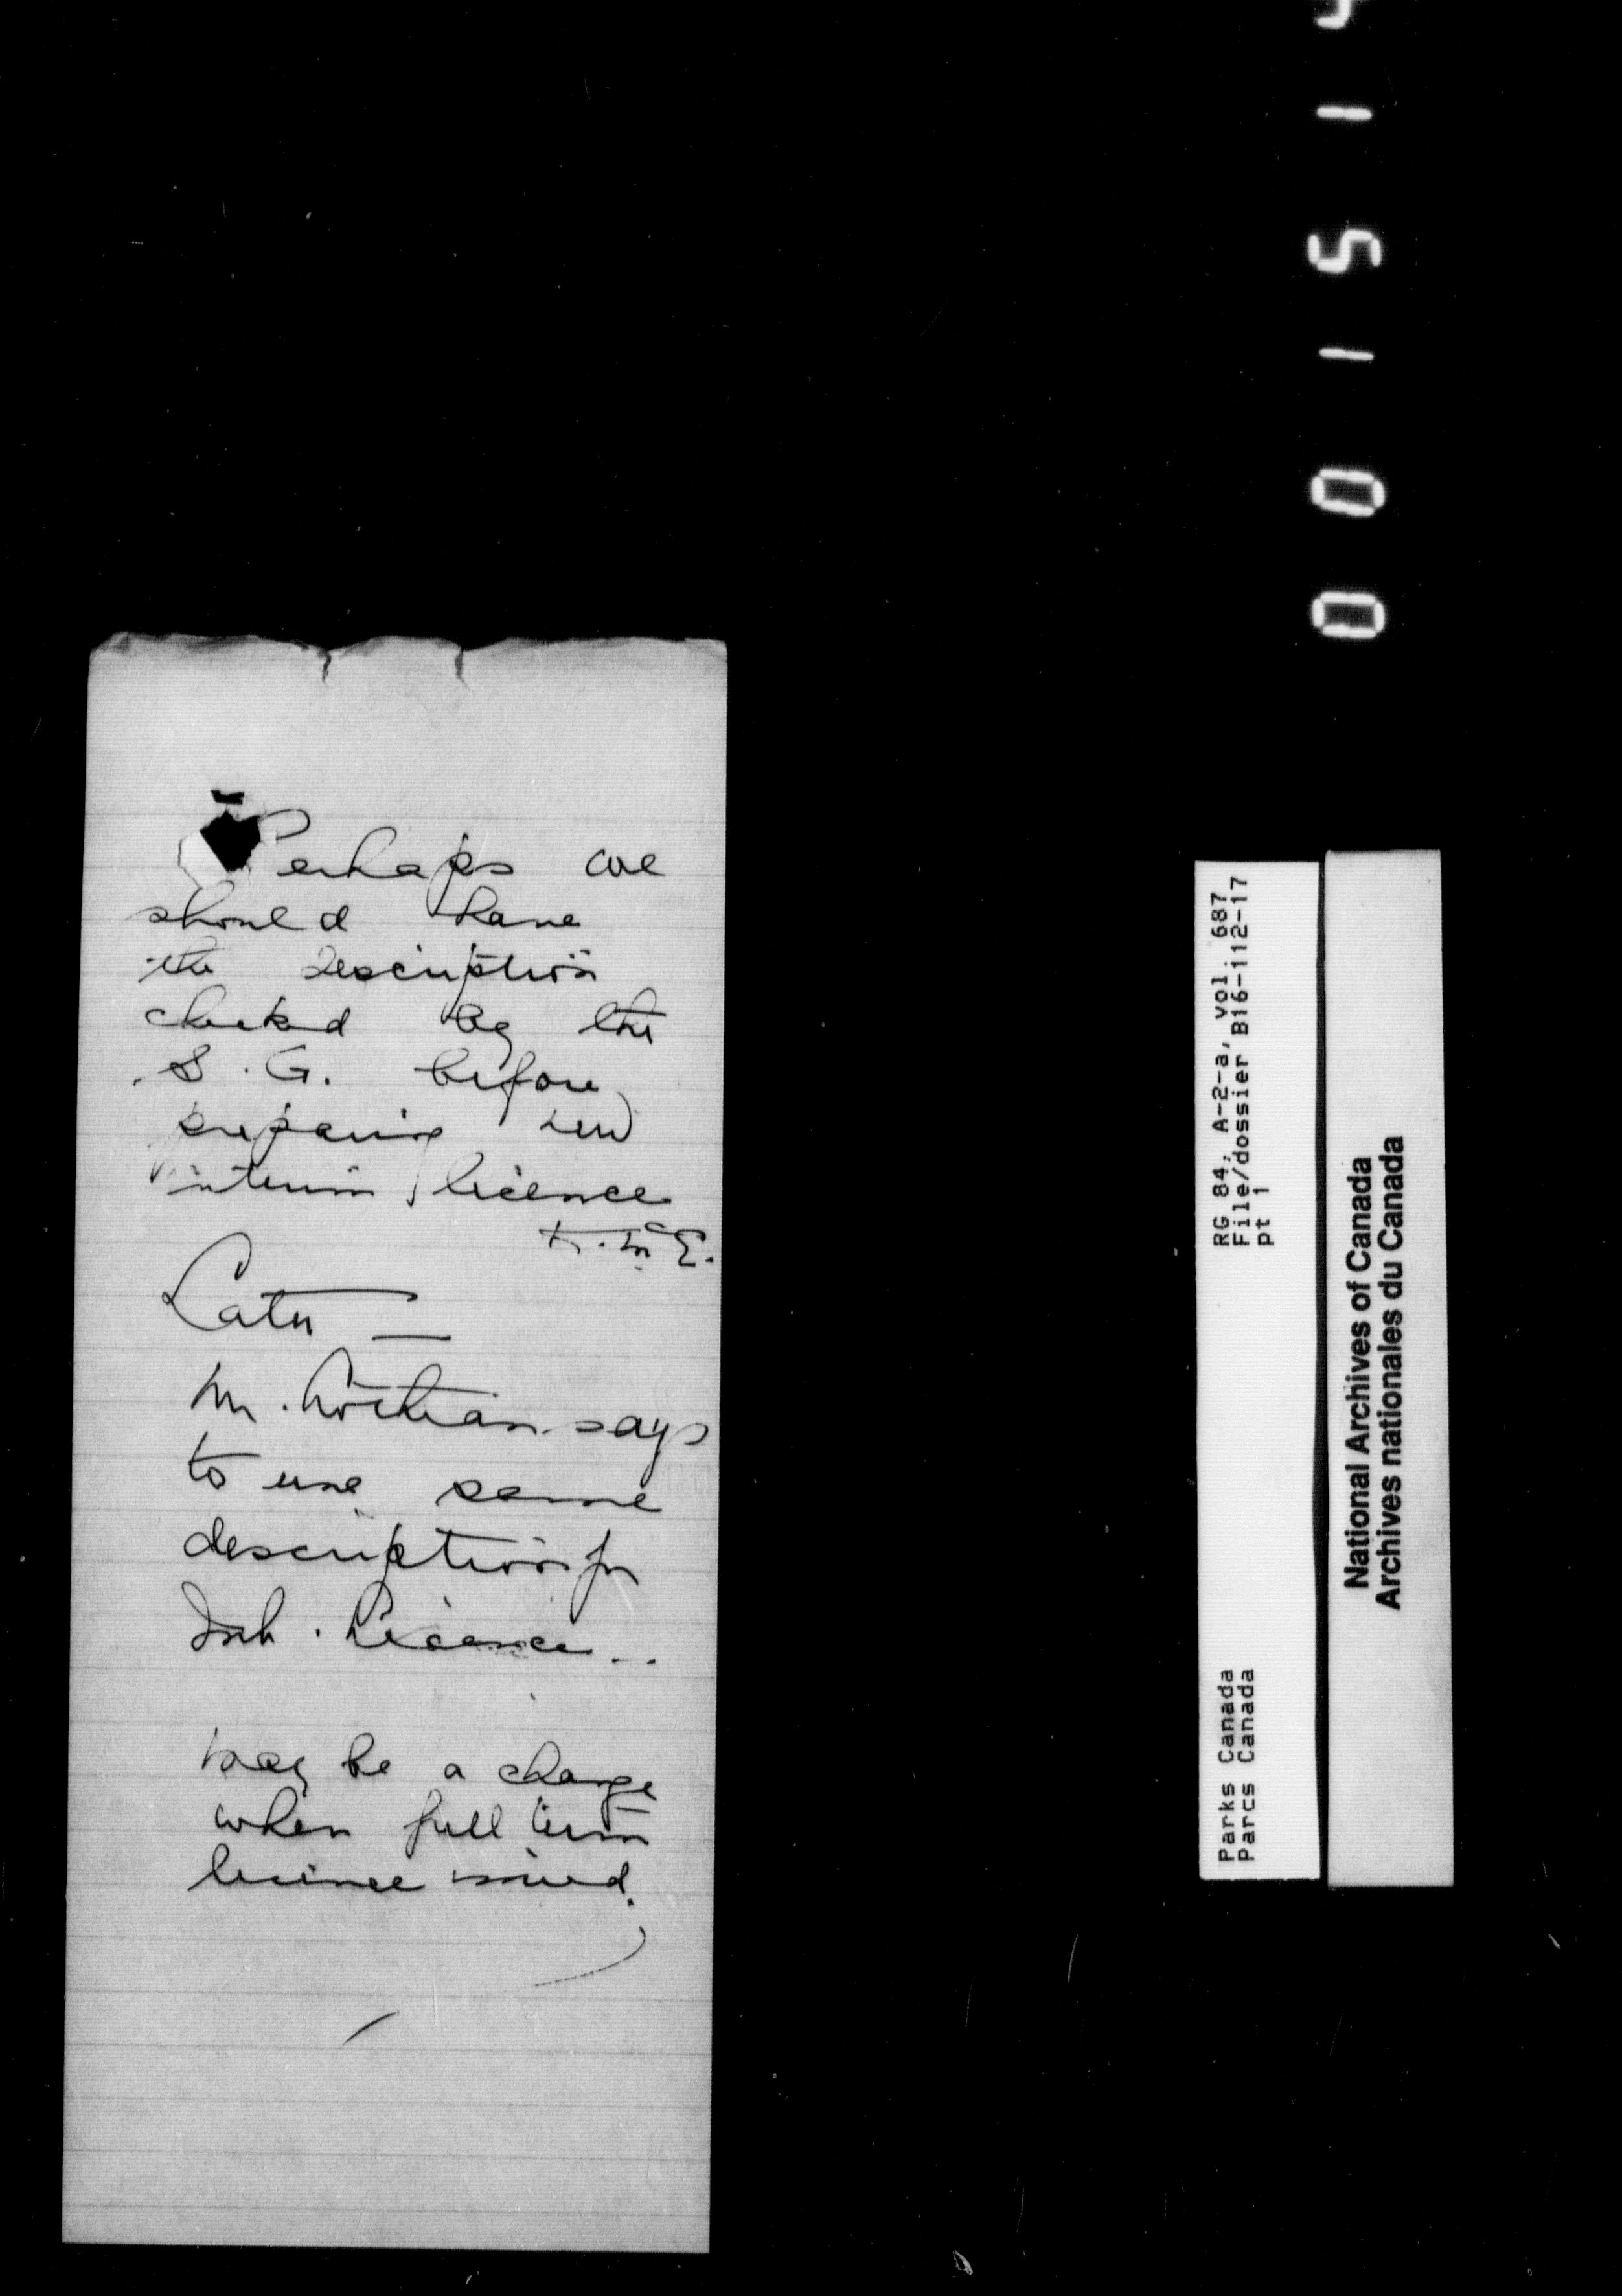 Perhaps we
should have
the description
checked by the
S. G. before
preparing new
interim licence
Later —
Mr. Lothian says
to use same
description for
Int. Licence..
may be a change
when full term
licence issued.
RG 84, A-2-a, vol. 687
File/dossier B16-112-17
pt 1
Parks Canada
Parcs Canada
National Archives of Canada
Archives nationales du Canada